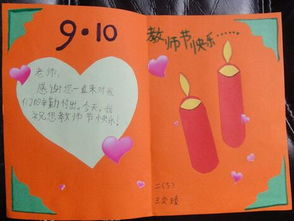 9·10
老师：
感谢您一直来对我
们的辛勤付出。今天，我
祝您教师节快乐！
教师节快乐……
二（5）